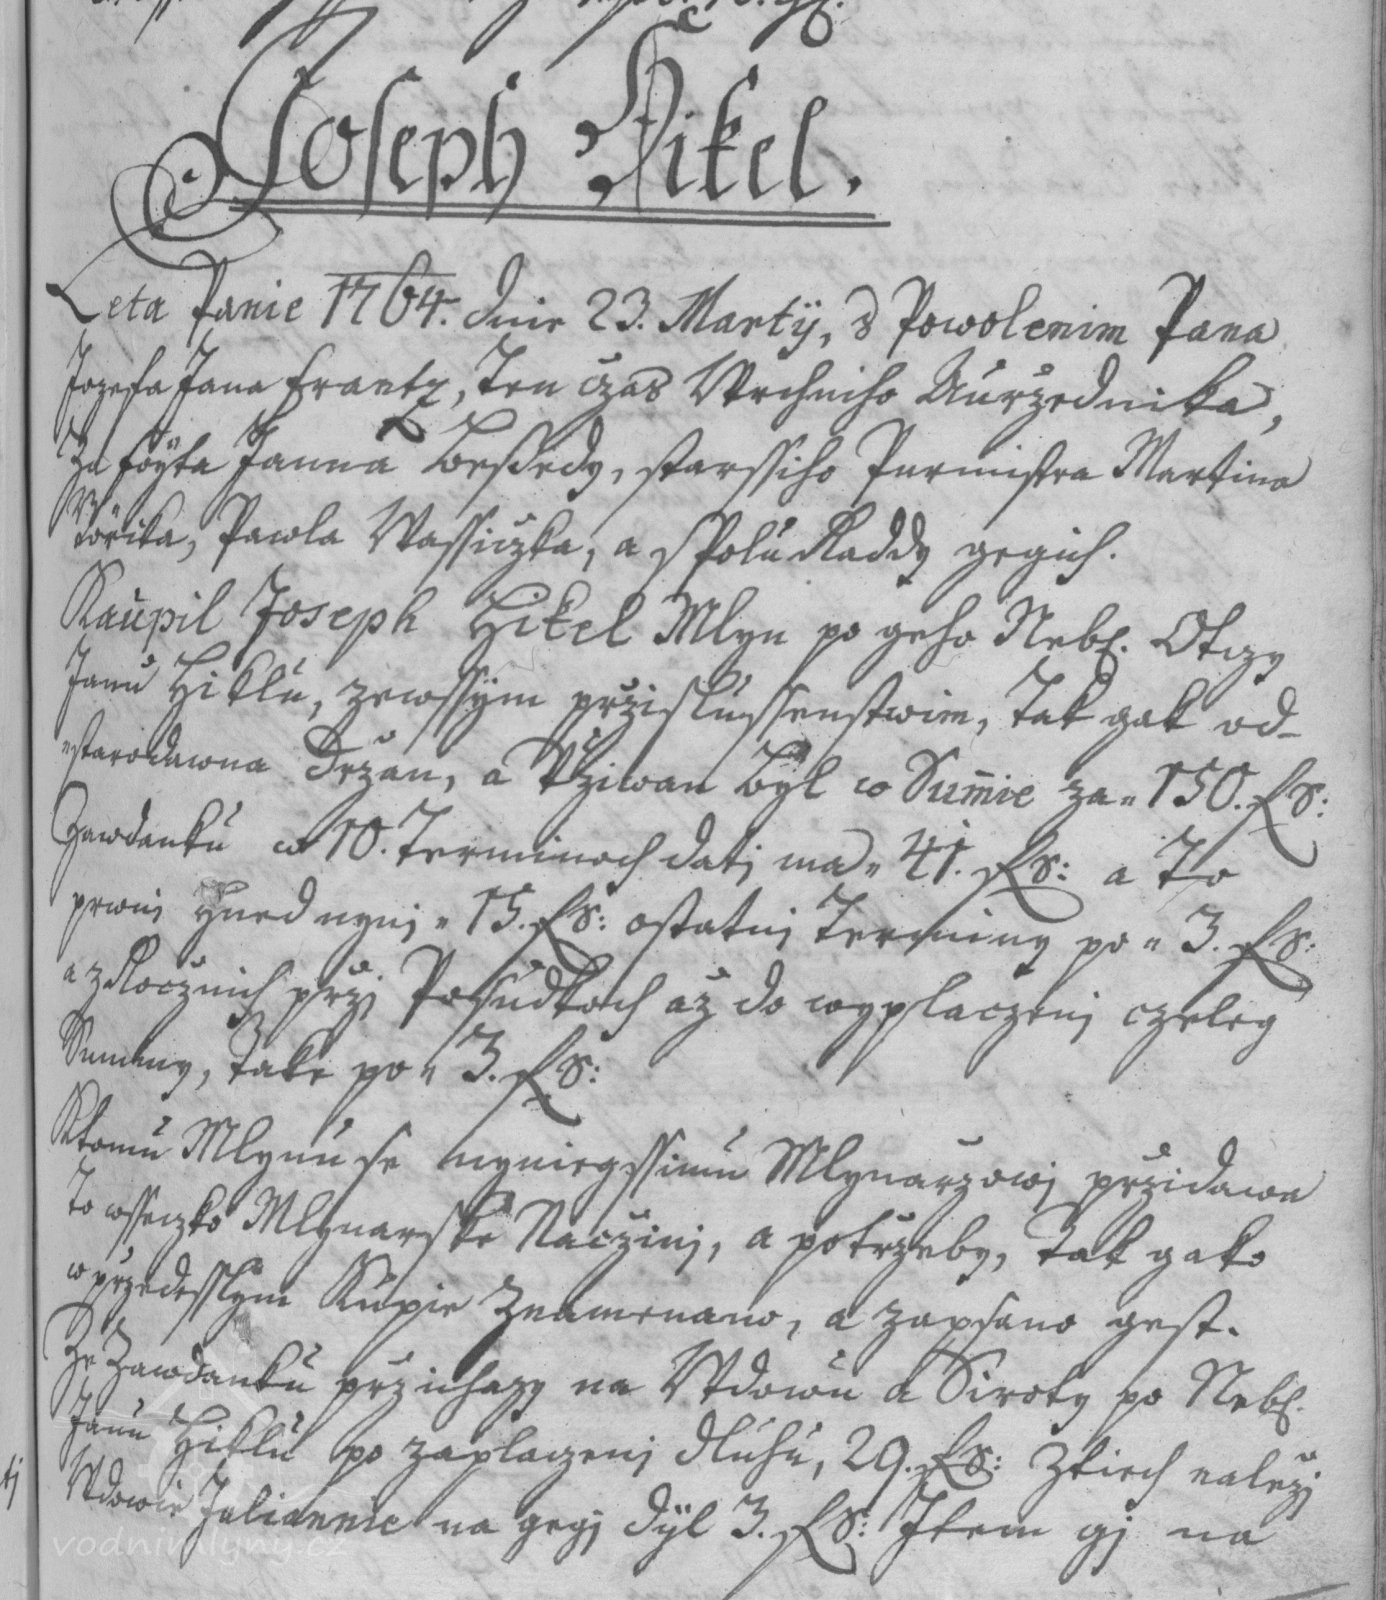 Joseph Hikel.
Leta Panie 1764. dnie 23. Martÿ, s Powolenim Pana
Jozefa Jana Frantz, Ten czas Wrchniho Auržednika,
Za foÿta Janna Beßedy, starssiho Purmistra Martina
Pawla Wassiczka, a spolu Raddy gegich.
Kaupil Joseph Hikel Mlyn po geho Neb. Otczy
Janu Hiklu, zewssÿm pržislussenstwim, Tak gak od-
starodawna Držan, a Užiwan Bÿl w Sumie za 150. fs:
Zawdanku w 10. Terminach dati ma 41. fs: a To
prwni hned nynj 15. fs: ostatnj Terminy po 3. fs:
a zRocžnich pržj Posudkach až do wyplaczenj czeleg
Summy, Take po 3. fs:
Ktomu Mlynu se nyniegssimu Mlynaržowj pržidawa
To wsseczko Mlynarske Naczinj, a potržeby, Tak gako
w pržedesslÿm Kupie Znamenano, a zapsano gest.
Ze Zawdanku pržichazy na Wdowu a Siroty po Neb.
Janu Hiklu po zaplaczenj dluhu, 29. fs: Zkterch naležj
Wdowie Juliannie na gegj dÿl 3. fs: Item gj na
tj
vodnimlyny.cz